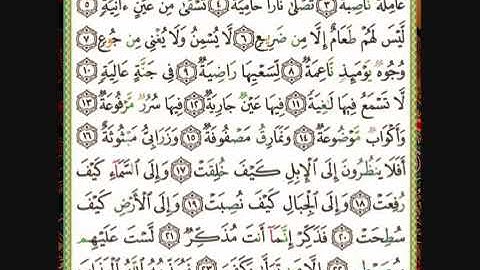 عَامِلَةٌ نَّاصِبَةٌ ٣ تَصْلَىٰ نَارًا حَامِيَةً ٤ تُسْقَىٰ مِنْ عَيْنٍ ءَانِيَةٍ ٥
لَّيْسَ لَهُمْ طَعَامٌ إِلَّا مِن ضَرِيعٍ ٦ لَّا يُسْمِنُ وَلَا يُغْنِى مِن جُوعٍ ٧
وُجُوهٌ يَوْمَئِذٍ نَّاعِمَةٌ ٨ لِّسَعْيِهَا رَاضِيَةٌ ٩ فِى جَنَّةٍ عَالِيَةٍ ١٠
لَّا تَسْمَعُ فِيهَا لَٰغِيَةً ١١ فِيهَا عَيْنٌ جَارِيَةٌ ١٢ فِيهَا سُرُرٌ مَّرْفُوعَةٌ ١٣
وَأَكْوَابٌ مَّوْضُوعَةٌ ١٤ وَنَمَارِقُ مَصْفُوفَةٌ ١٥ وَزَرَابِىُّ مَبْثُوثَةٌ ١٦
أَفَلَا يَنظُرُونَ إِلَى ٱلْإِبِلِ كَيْفَ خُلِقَتْ ١٧ وَإِلَى ٱلسَّمَآءِ كَيْفَ
رُفِعَتْ ١٨ وَإِلَى ٱلْجِبَالِ كَيْفَ نُصِبَتْ ١٩ وَإِلَى ٱلْأَرْضِ كَيْفَ
سُطِحَتْ ٢٠ فَذَكِّرْ إِنَّمَآ أَنتَ مُذَكِّرٌ ٢١ لَّسْتَ عَلَيْهِم